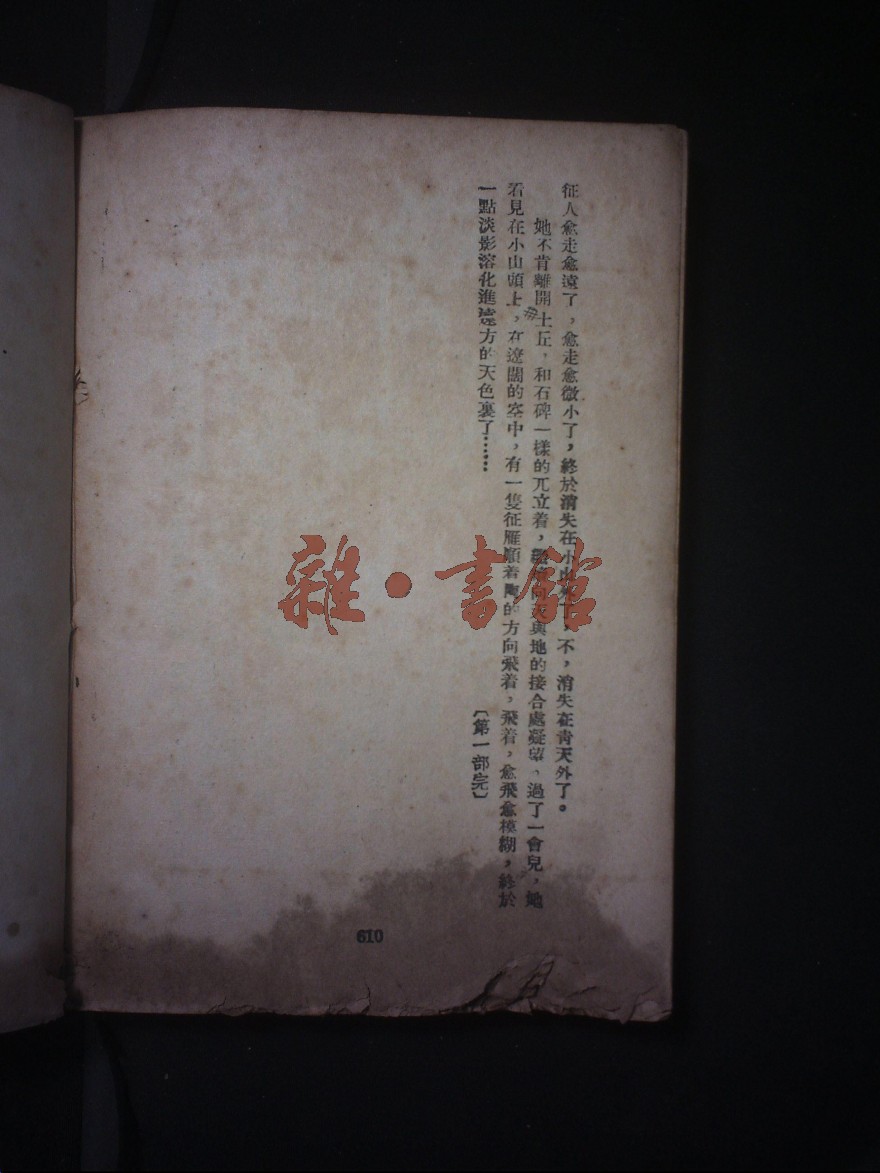 征人愈走愈遠了，愈走愈微小了，終於消失在小山不，消失在青天外了。
她不肯離開土丘，和石碑一樣的兀立着，與地的接合處凝望。過了一會兒，她
看見在小山頭上，在遼闊的空中，有一隻征雁順着陶的方向飛着，飛着，愈飛愈模糊，終於
一點淡影溶化進遠方的天色裏了……
〔第一部完〕
610
雜·書館